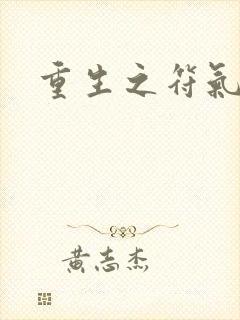 重生之符氣
黃志杰